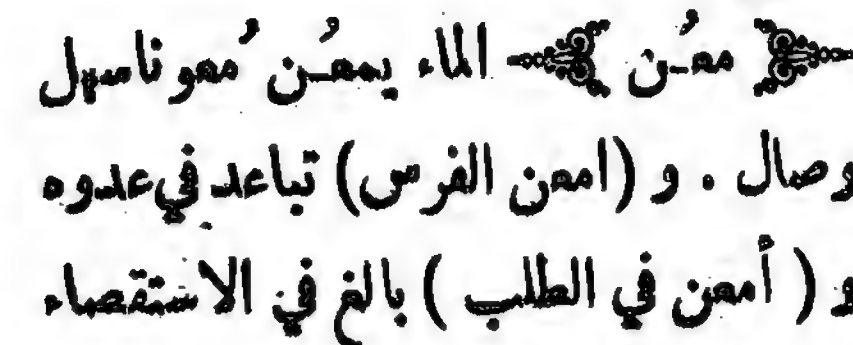 ﴿ معُن ﴾ الماء يمعُن مُعونا سهل
وصال . و (امعن الفرس) تباعد في عدوه
و ( أمعن في الطلب ) بالغ في الاستقصاء